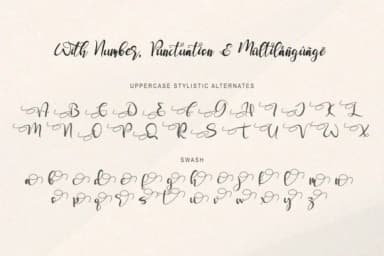 With Number, Punctuation & Multilanguange
UPPERCASE STYLISTIC ALTERNATES
A B C D E F G H I J K L
M N O P Q R S T U V W X
SWASH
a b c d e f g h i j k l m n
o p q r s t u v w x y z